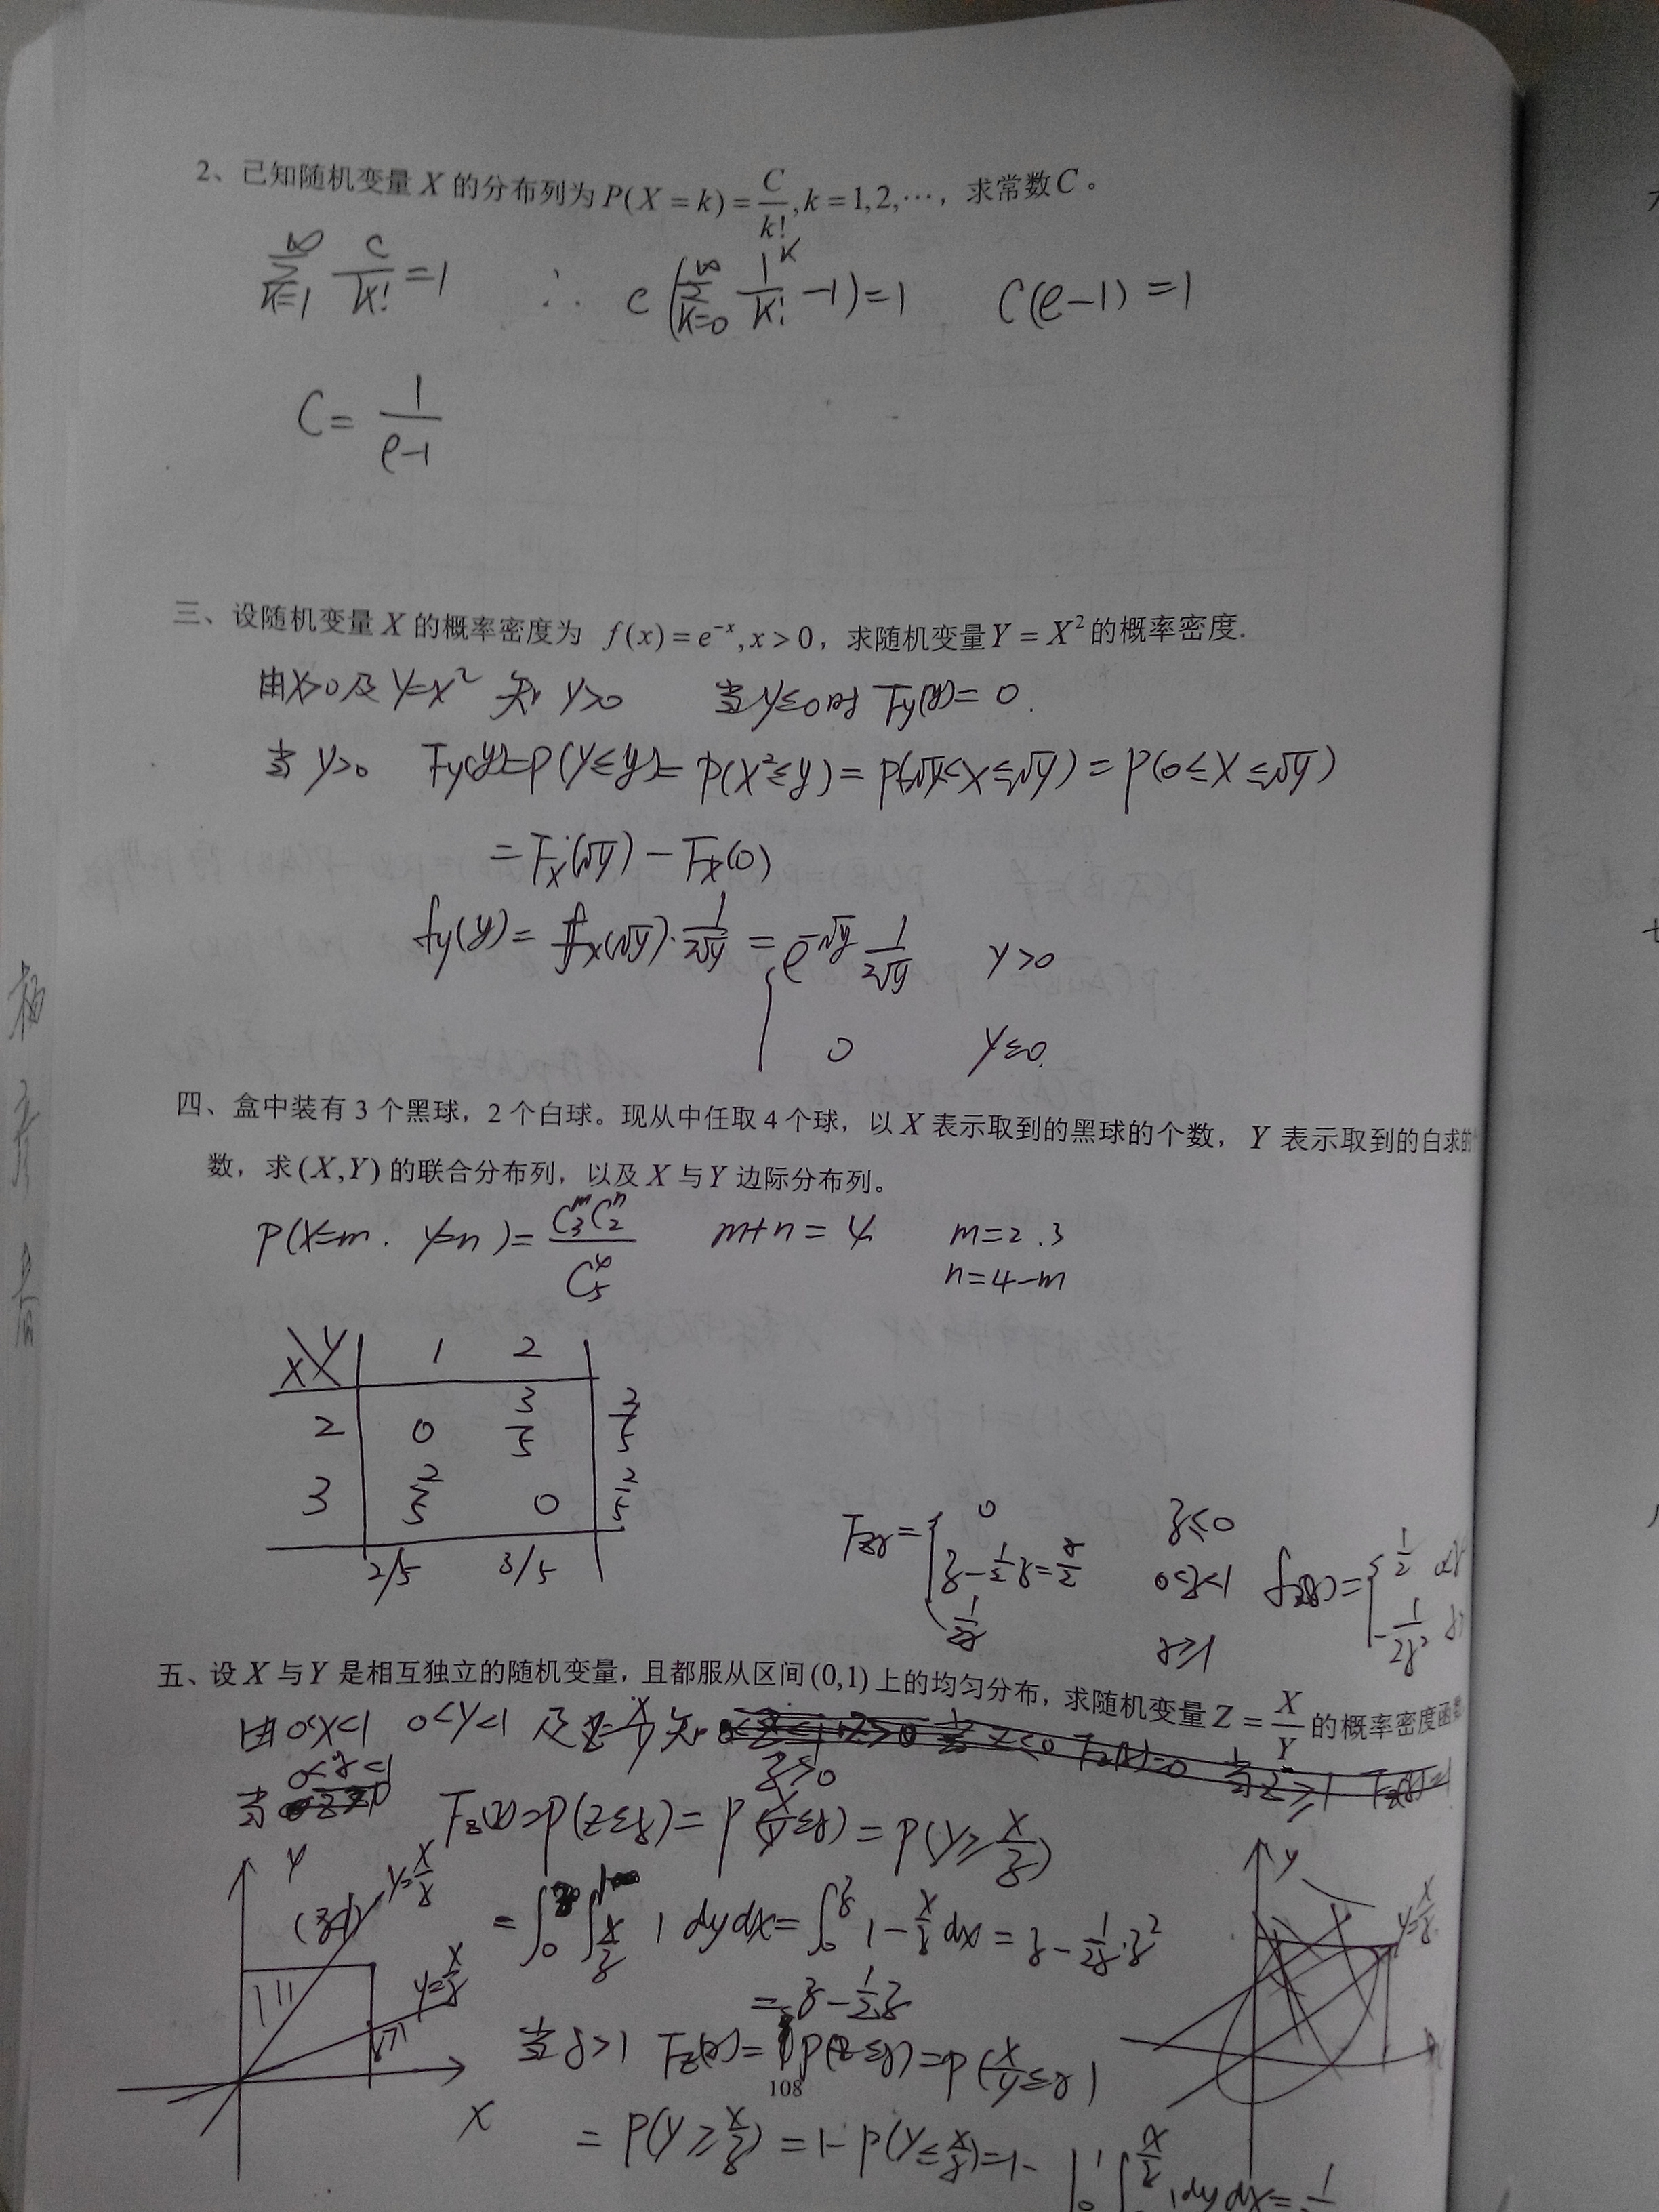 2、已知随机变量 X 的分布列为 P(X = k) = C/k!, k = 1,2,⋯，求常数C。
∞∑k=1 C/k! = 1 ∴ C(∞∑k=0 1^k/k! −1)=1 C(e−1)=1
C = 1/(e−1)
三、设随机变量 X 的概率密度为 f(x) = e^{-x}, x > 0，求随机变量 Y = X² 的概率密度.
由X>0及Y=X² 知 Y>0 当y≤0时 F_Y(y)=0.
当 y>0 F_Y(y)=P(Y≤y)=P(X²≤y)=P(-√y<X≤√y)=P(0≤X≤√y)
=F_X(√y)−F_X(0)
f_Y(y)=f_X(√y)·1/(2√y)={e^{-√y} 1/(2√y) y>0
0 y≤0.
四、盒中装有 3 个黑球，2 个白球。现从中任取 4 个球，以 X 表示取到的黑球的个数，Y 表示取到的白求的个
数，求 (X,Y) 的联合分布列，以及 X 与 Y 边际分布列。
P(X=m. Y=n)=C₃^m C₂^n/C₅⁴ m+n=4 m=2.3
n=4−m
X Y 1 2
2 0 3/5 3/5
3 2/5 0 2/5
2/5 3/5
F_Z(z)={0 z≤0
z−1/2z=z/2 0<z<1 f_Z(z)={1/2
1/2z z≥1 −1/2z²
五、设 X 与 Y 是相互独立的随机变量，且都服从区间 (0,1) 上的均匀分布，求随机变量 Z = X/Y 的概率密度函数
由0<X<1 0<Y<1 及Z=X/Y 知 z>0
当 0<z<1 F_Z(z)=P(Z≤z)=P(X/Y≤z)=P(Y≥X/z)
y y=x/z (z,1) y=x/z x
=∫₀^z∫_{x/z}^1 1 dydx=∫₀^z 1−x/z dx=z−1/2z·z²
=z−1/2z
y y=x/z
当 z>1 F_Z(z)=P(Z≤z)=P(X/Y≤z)
108
=P(Y≥X/z)=1−P(Y≤X/z)=1−∫₀^1∫^{x/z} 1dydx=